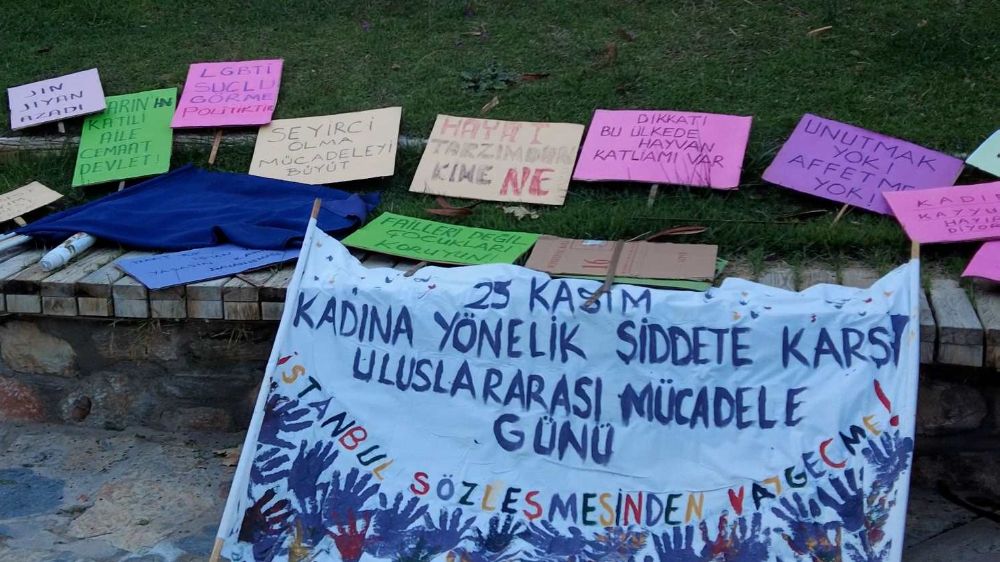 JIN
JIYAN
AZADÎ
KATİLİ
AİLE
CEMAAT
DEVLET!
LGBTİ
SUÇLU
GÖRME
POLİTİKTİR
SEYİRCİ
OLMA
MÜCADELEYİ
BÜYÜT
HAYAT
TARZIMDAN
KİME NE
DİKKAT!
BU ÜLKEDE
HAYVAN
KATLİAMI VAR
UNUTMAK
YOK!
AFFETMEK
YOK!
FAİLLERİ DEĞİL
ÇOCUKLARI
KORUYUN!
25 KASIM
KADINA YÖNELİK ŞİDDETE KARŞI
ULUSLARARASI MÜCADELE
GÜNÜ
İSTANBUL SÖZLEŞMESİNDEN VAZGEÇME!